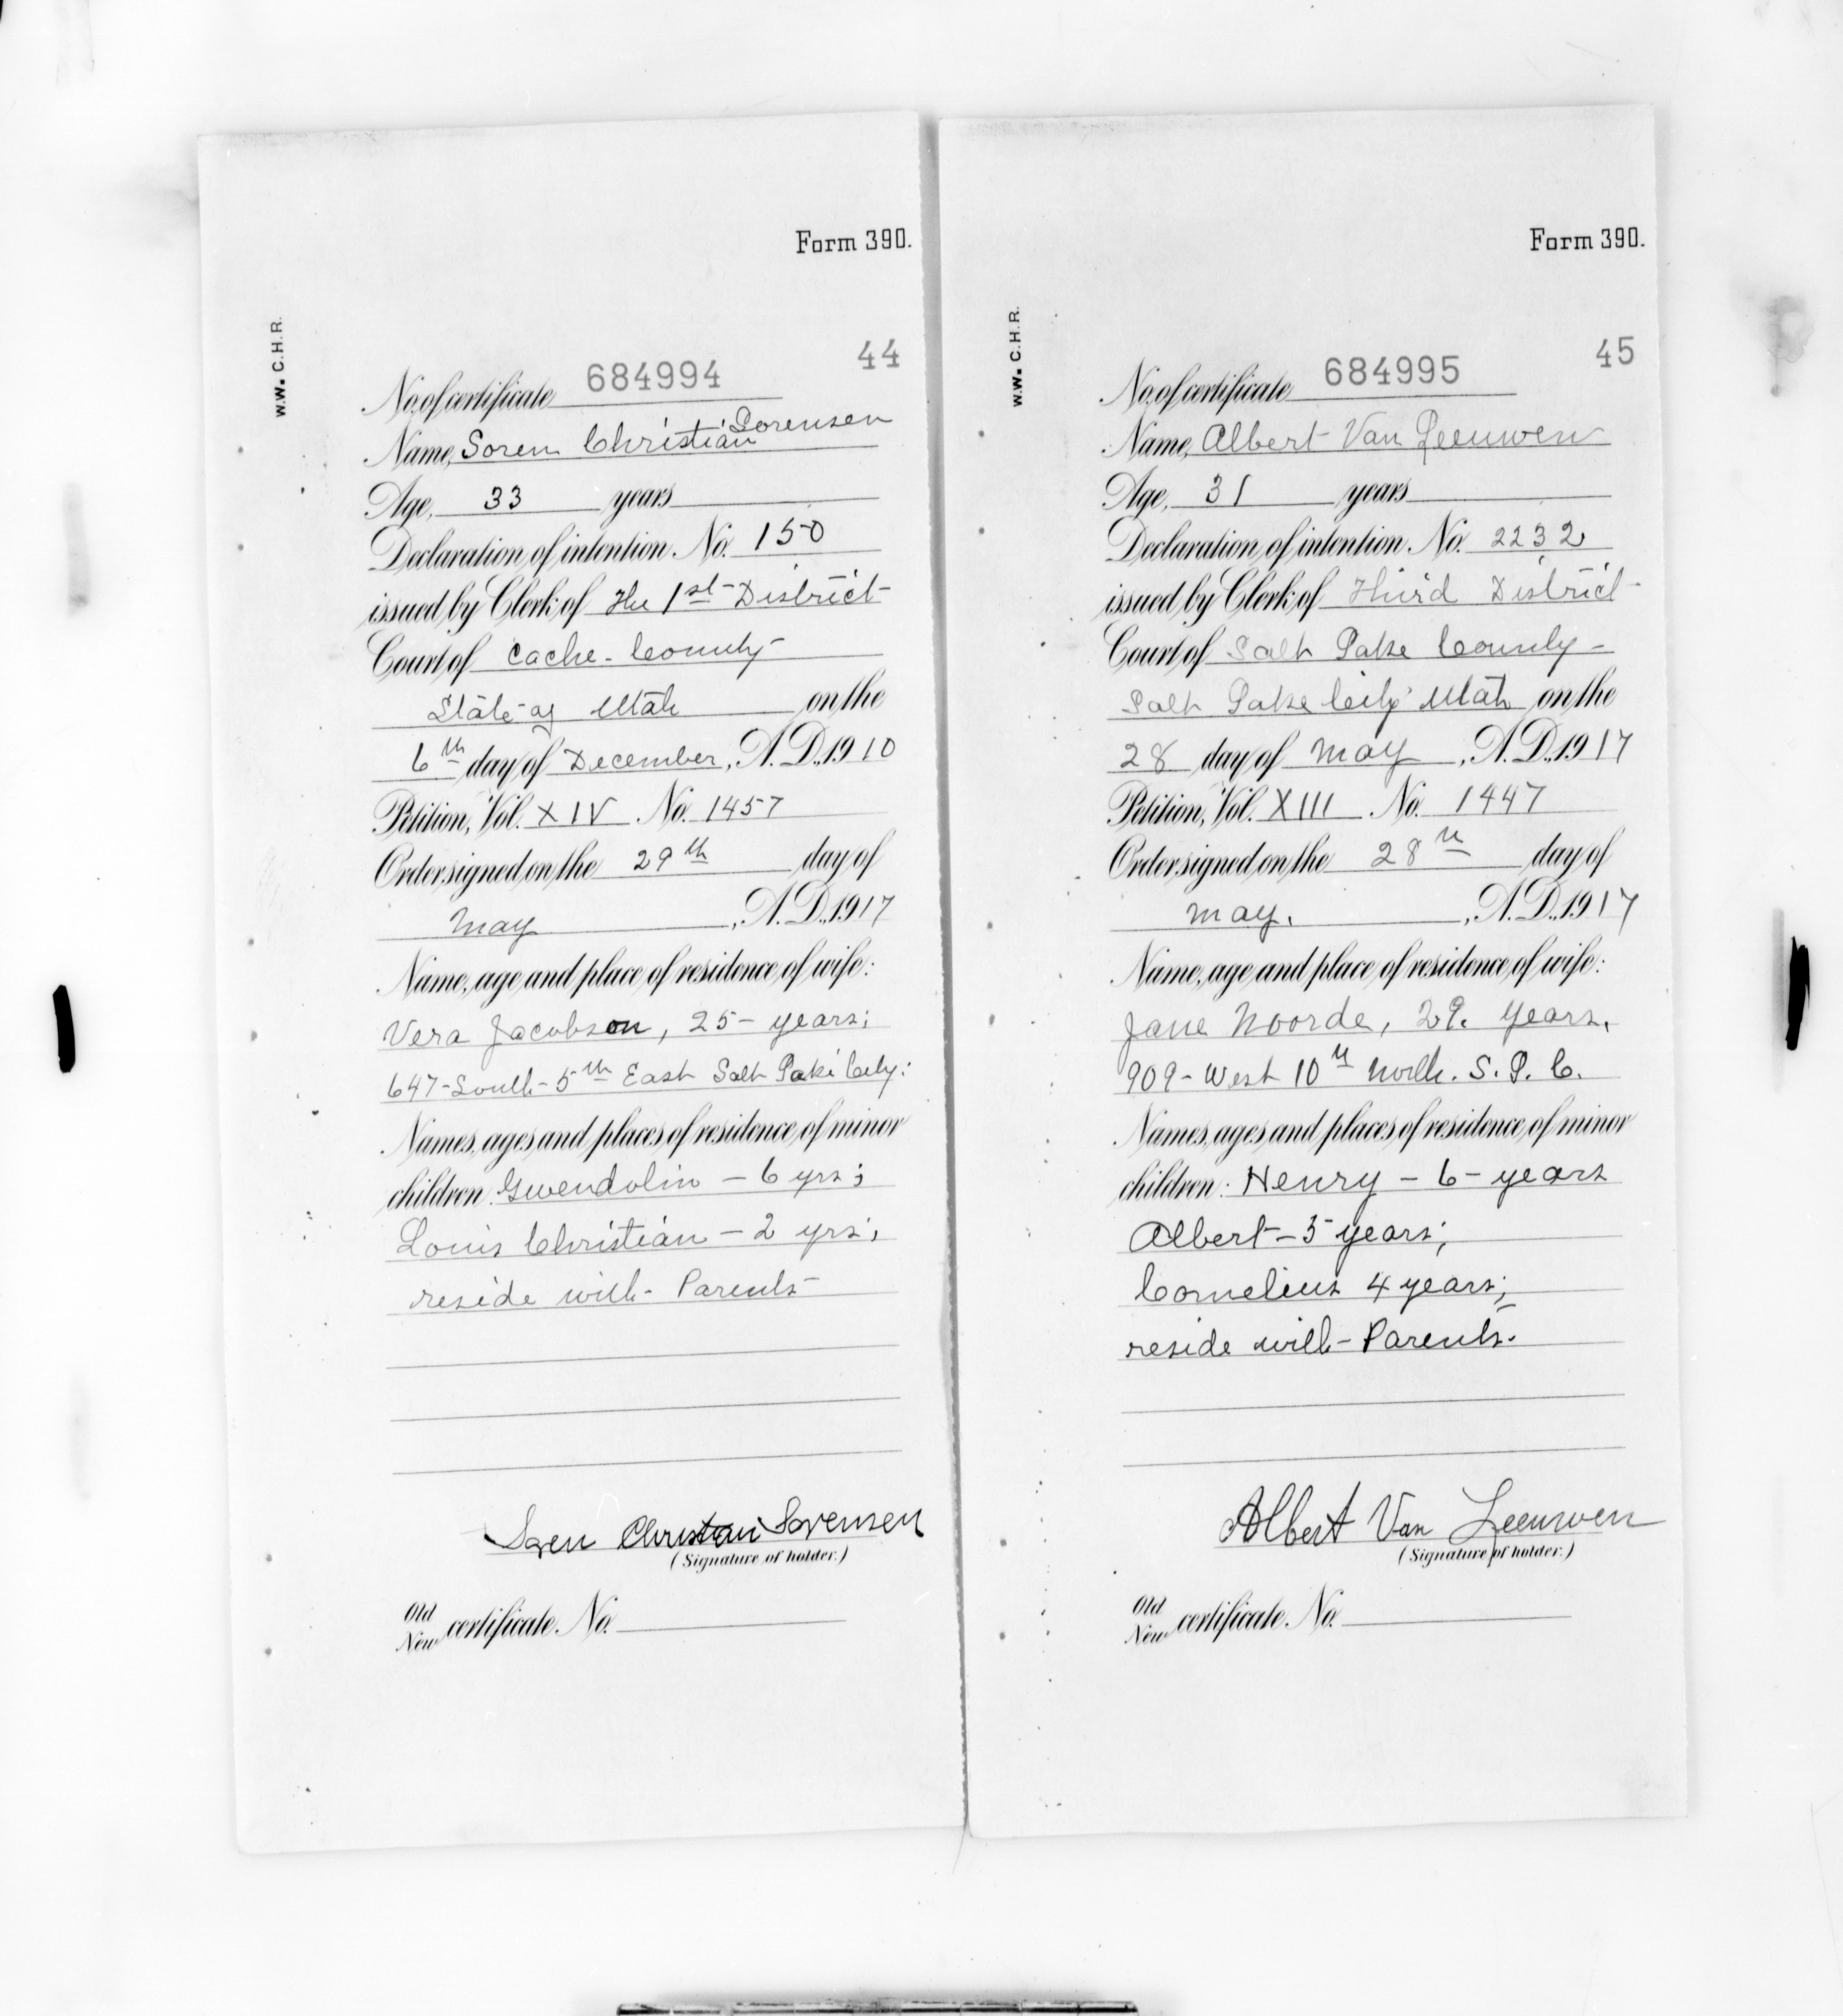 Form 390.
W.W. C.H.R.
44
No. of certificate 684994
Name, Soren Christian Sorensen
Age, 33 years
Declaration of intention No. 150
issued by Clerk of the 1st District
Court of Cache County
State of Utah on the
6th day of December, A.D. 1910
Petition, Vol. XIV No. 1457
Order signed on the 29th day of
May, A.D. 1917
Name, age and place of residence of wife:
Vera Jacobson, 25 years;
647-South-5th East Salt Lake City:
Names, ages and places of residence of minor
children: Gwendolin - 6 yrs;
Louis Christian - 2 yrs;
reside with Parents
Soren Christian Sorensen
(Signature of holder.)
Old
New certificate No.
Form 390.
W.W. C.H.R.
45
No. of certificate 684995
Name, Albert Van Leeuwen
Age, 31 years
Declaration of intention No. 2232
issued by Clerk of Third District
Court of Salt Lake County -
Salt Lake City Utah on the
28 day of May, A.D. 1917
Petition, Vol. XIII No. 1447
Order signed on the 28th day of
May, A.D. 1917
Name, age and place of residence of wife:
Jane Noorde, 29. years.
909 - West 10th North. S. L. C.
Names, ages and places of residence of minor
children: Henry - 6 - years
Albert - 5 years;
Cornelius 4 years;
reside with - Parents.
Albert Van Leeuwen
(Signature of holder.)
Old
New certificate No.